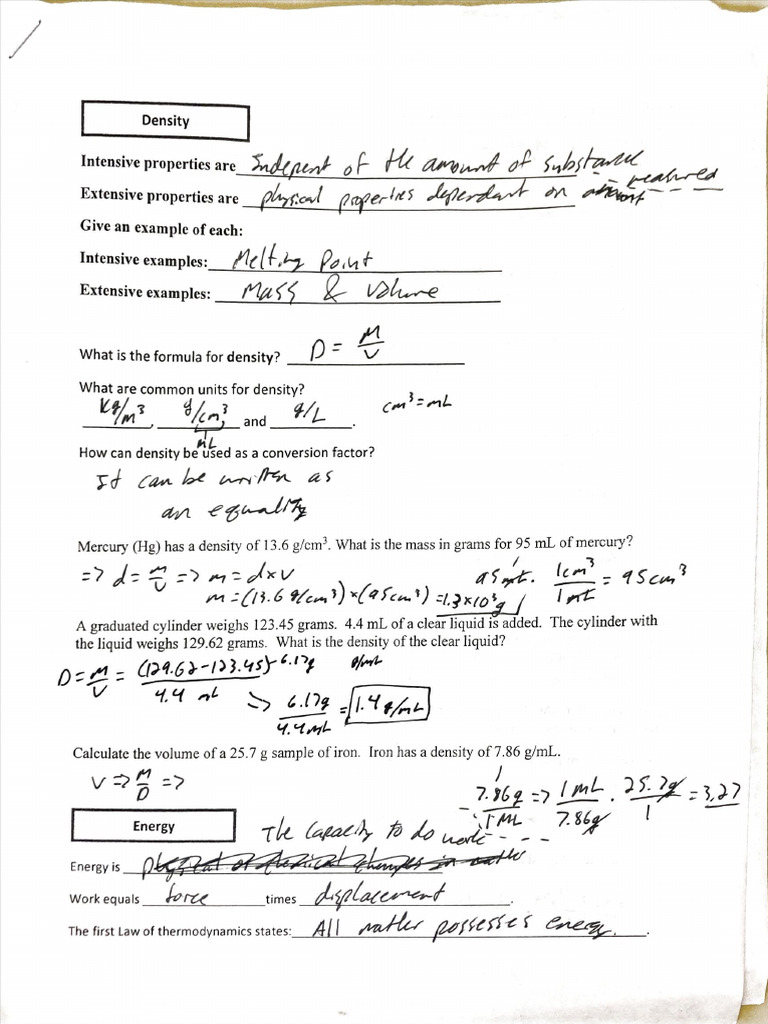 Density
Intensive properties are Indepent of the amount of substance
Extensive properties are physical properties dependant on amount measured
Give an example of each:
Intensive examples: Melting Point
Extensive examples: Mass & volume
What is the formula for density? D = M/V
What are common units for density?
kg/m³, g/cm³, and g/L. cm³ = mL
mL
How can density be used as a conversion factor?
It can be written as
an equality
Mercury (Hg) has a density of 13.6 g/cm³. What is the mass in grams for 95 mL of mercury?
=> d = m/v => m = d×v 95 mL. 1cm³/1mL = 95cm³
m = (13.6 g/cm³) × (95cm³) = 1.3×10³g
A graduated cylinder weighs 123.45 grams. 4.4 mL of a clear liquid is added. The cylinder with
the liquid weighs 129.62 grams. What is the density of the clear liquid?
D = M/V = (129.62-123.45)-6.17g/4.4 mL g/mL
=> 6.17g/4.4mL = 1.4 g/mL
Calculate the volume of a 25.7 g sample of iron. Iron has a density of 7.86 g/mL.
V => M/D => 7.86g/1mL => 1mL/7.86g · 25.7g/1 = 3.27
Energy
The capacity to do work
Energy is physical or chemical changes in matter
Work equals force times displacement.
The first Law of thermodynamics states: All matter possesses energy.